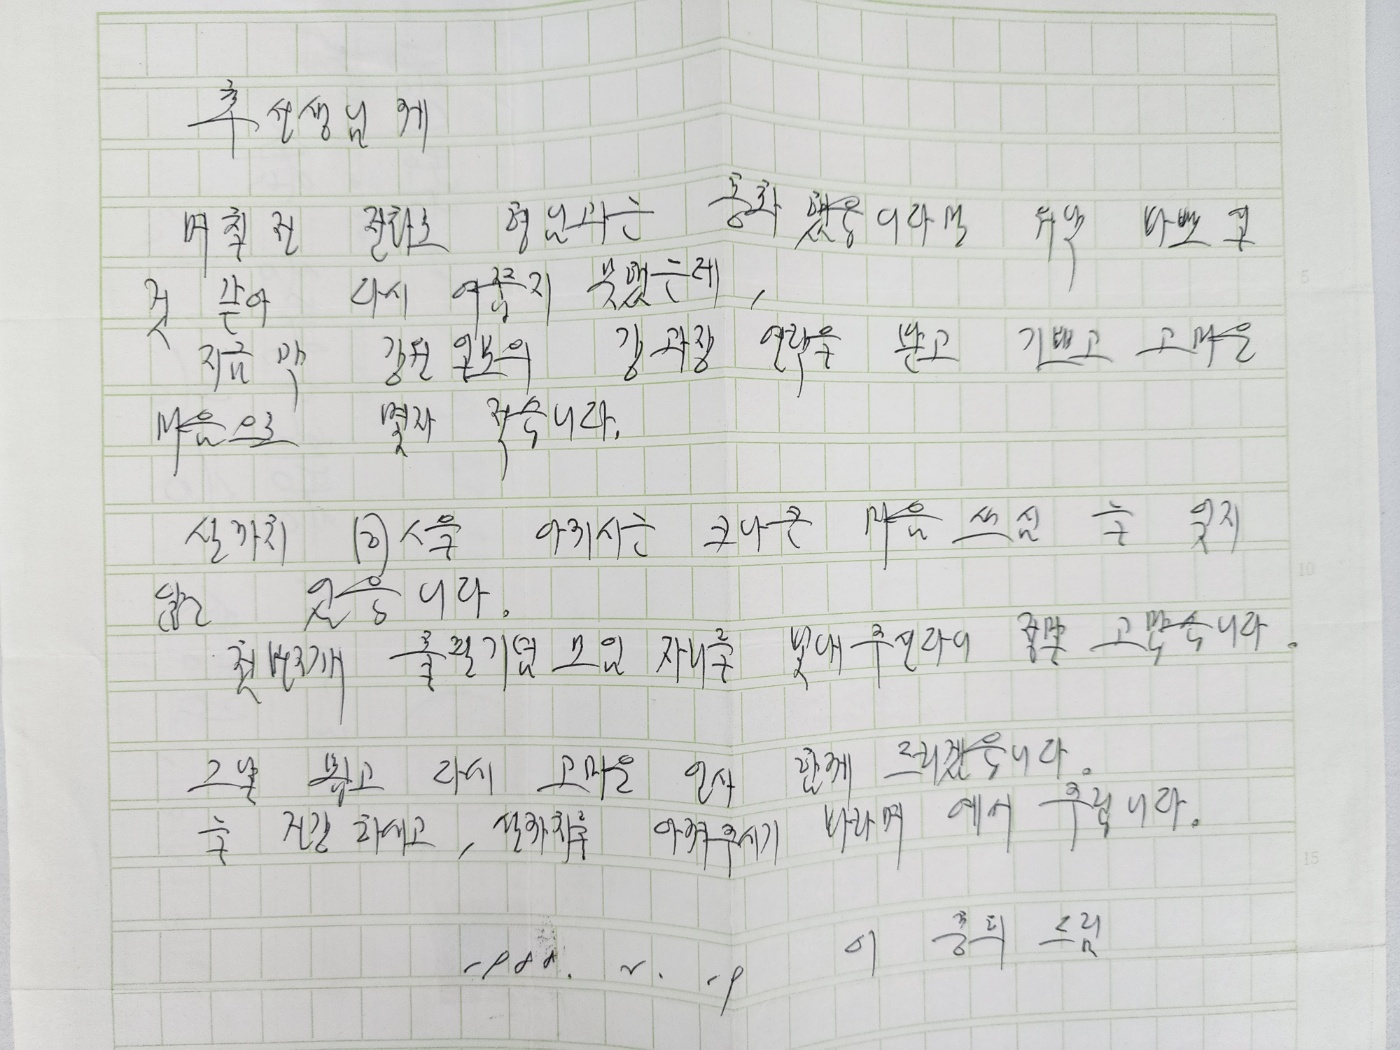 선생님께
며칠전 전화로 형님과는 통화 했읍니다만 무척 바쁘고
것 같아 다시 여쭙지 못했는데,
지금 막 강원일보의 김과장 연락을 받고 기쁘고 고마운
마음으로 몇자 적습니다.
실가치 아끼시는 크나큰 마음 쓰심 늘 잊지
않고 있읍니다.
첫번째 출필기념 모임 자리를 빛내주신다니 정말 고맙습니다.
그날 뵙고 다시 고마운 인사 함께 드리겠습니다.
늘 건강 하시고, 아껴주시기 바라며 예서 줄입니다.
이 드림
1988. 2. 19
5
10
15